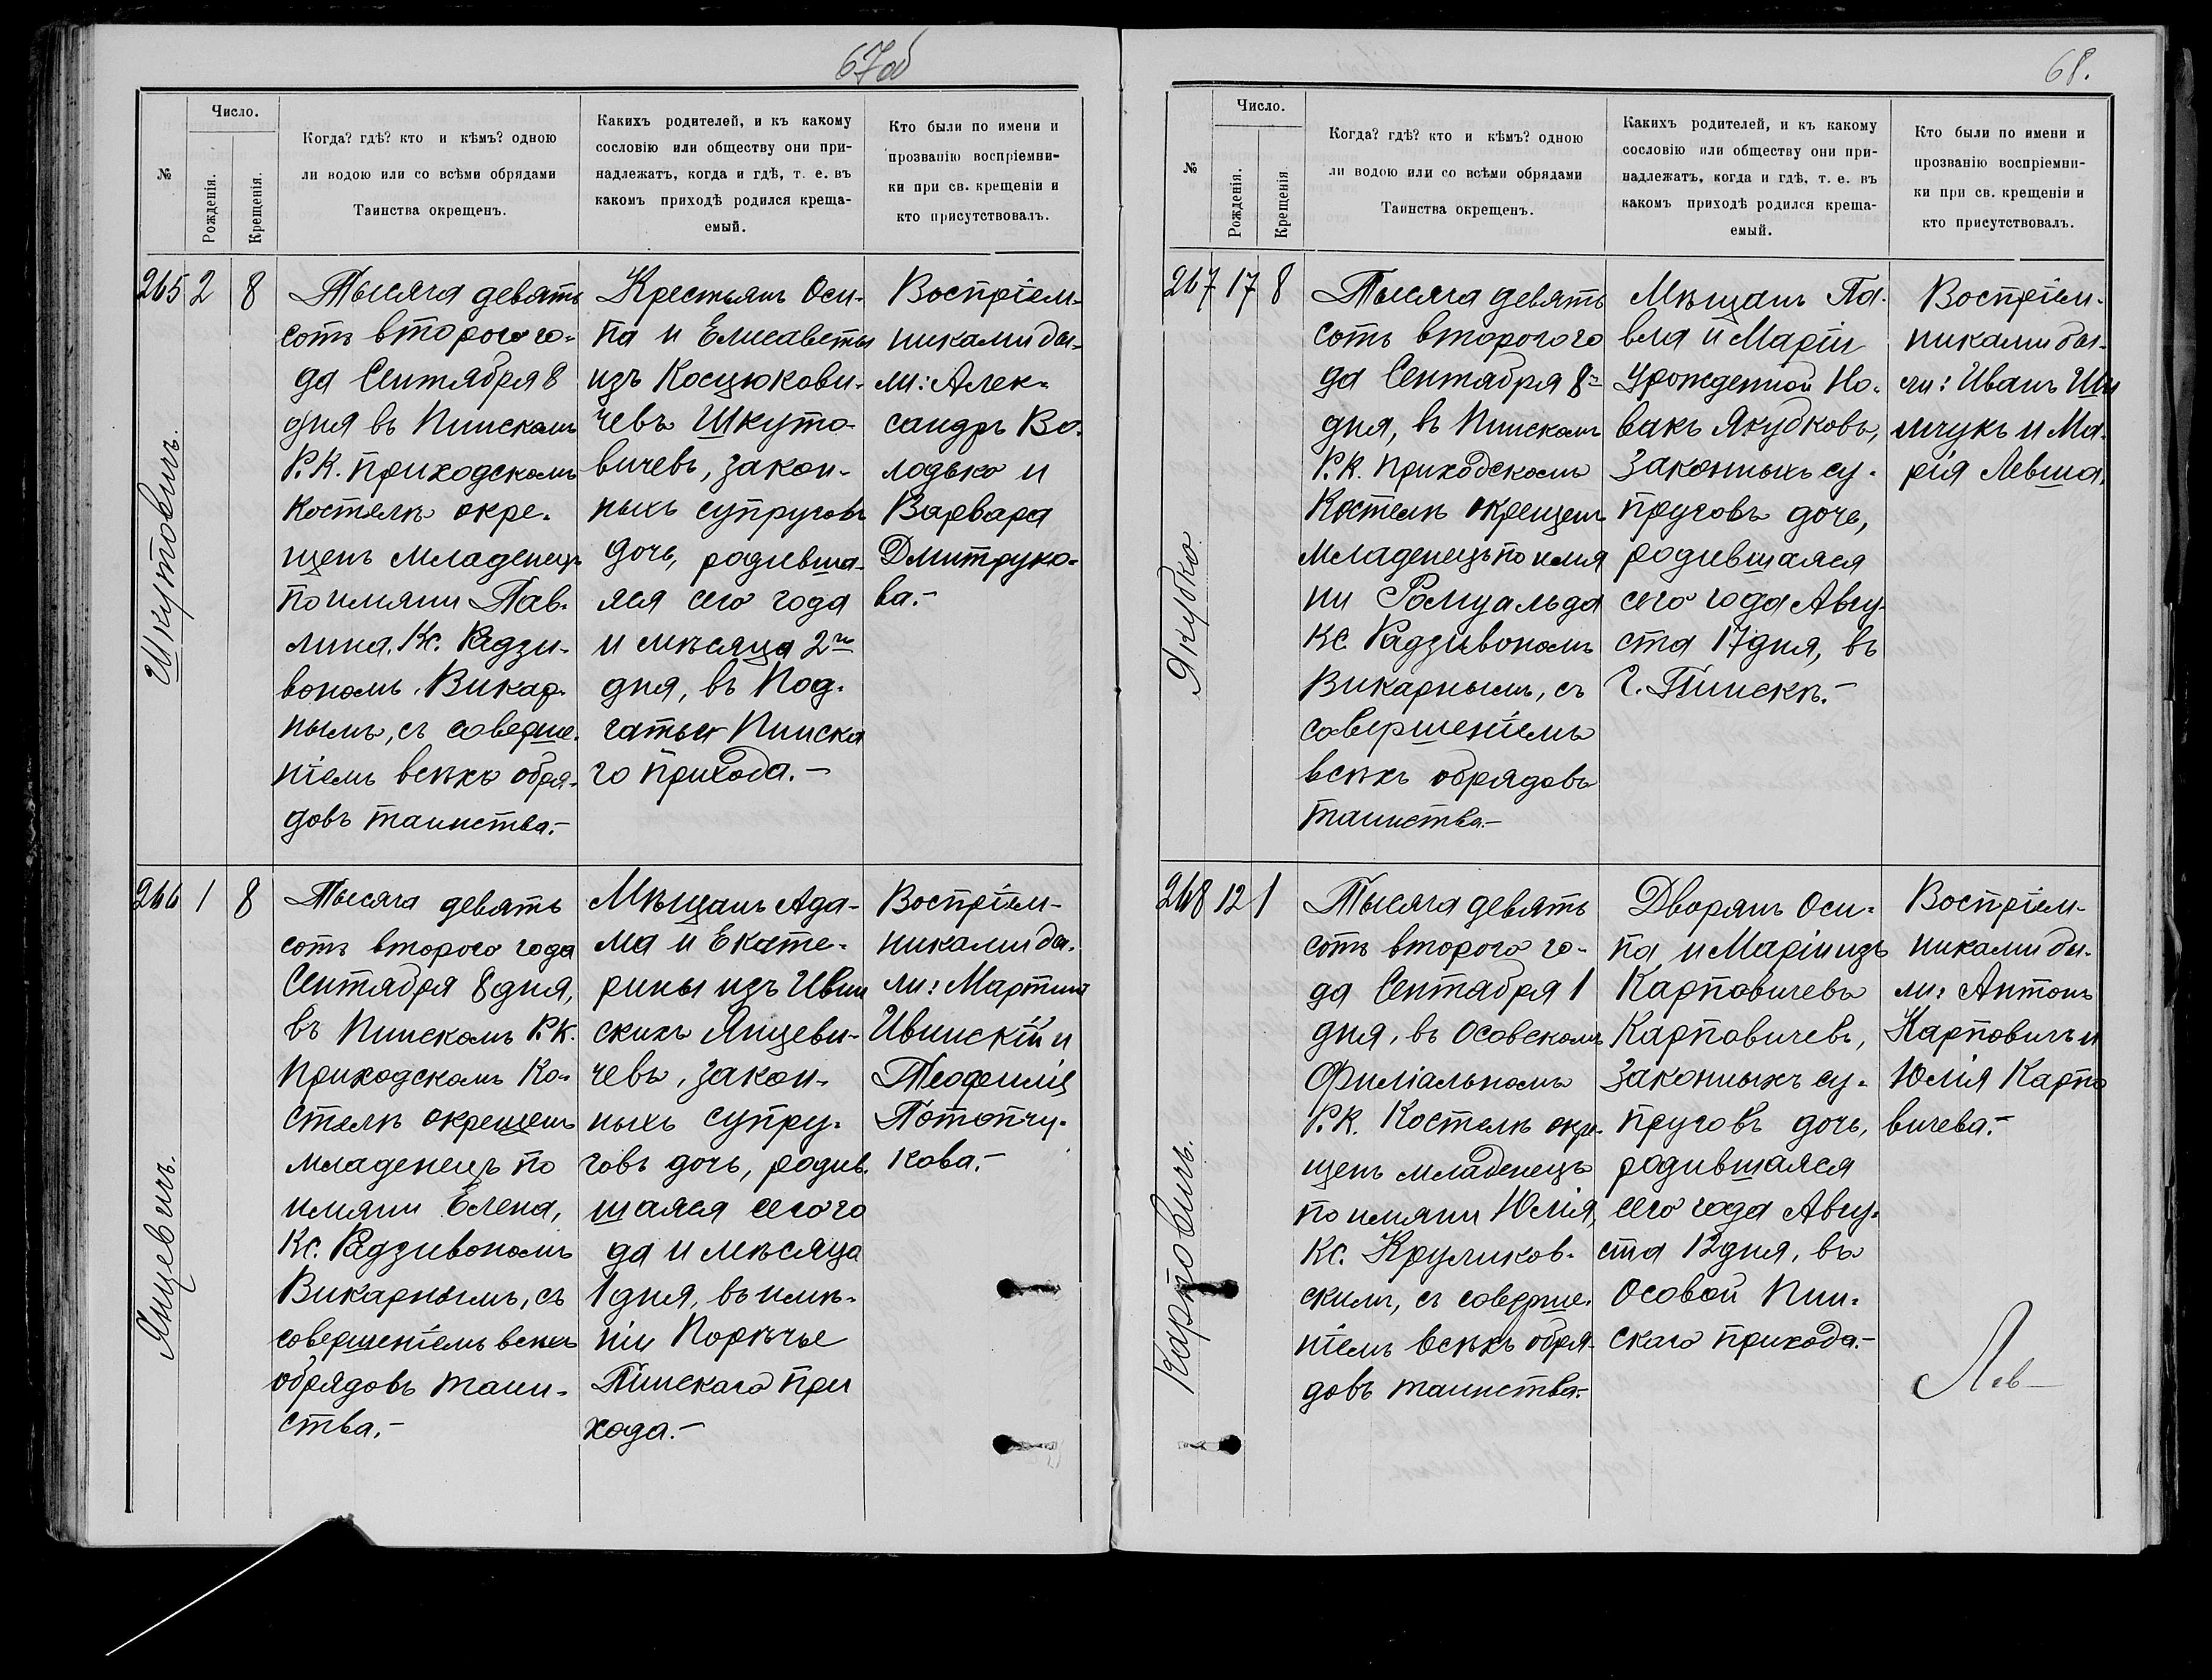 67об
№
Число.
Рожденія.
Крещенія.
Когда? гдѣ? кто и кѣмъ? одною
ли водою или со всѣми обрядами
Таинства окрещенъ.
Какихъ родителей, и къ какому
сословію или обществу они при-
надлежатъ, когда и гдѣ, т. е. въ
какомъ приходѣ родился креща-
емый.
Кто были по имени и
прозванію воспріемни-
ки при св. крещеніи и
кто присутствовалъ.
265 2 8
Шкутовичъ.
Тысяча девять
сотъ второго го-
да Сентября 8
дня въ Пинскомъ
Р.К. приходскомъ
костелѣ окре-
щенъ младенецъ
по имяни Пав-
лина, Кс. Радзи-
вономъ, Викар-
нымъ, съ соверше-
ніемъ всѣхъ обря-
довъ таинства.-
Крестьянъ Оси-
па и Елисаветы
изъ Косцюкови-
чевъ Шкуто-
вичевъ, закон-
ныхъ супруговъ
дочь, родивша-
яся сего года
и мѣсяца 2го
дня, въ Под-
гатьи Пинска
го прихода.-
Воспріем-
никами бы-
ли: Алек-
сандръ Во-
лодько и
Варвара
Дмитруко-
ва.-
266 1 8
Янцевичъ.
Тысяча девять
сотъ второго года
Сентября 8 дня,
въ Пинскомъ Р.К.
приходскомъ Ко-
стелѣ окрещенъ
младенецъ по
имяни Елена,
Кс. Радзивономъ
Викарнымъ, съ
совершеніемъ всѣхъ
обрядовъ таин-
ства.-
Мѣщанъ Ада-
ма и Екате-
рины изъ Ивин
скихъ Янцеви-
чевъ, закон-
ныхъ супру-
говъ дочь, родив-
шаяся сего го
да и мѣсяца
1 дня, въ имѣ-
ніи Порѣчье
Пинскаго при
хода.-
Воспріем-
никами бы-
ли: Мартинъ
Ивинскій и
Теофилія
Потопчу-
кова.-
68.
№
Число.
Рожденія.
Крещенія.
Когда? гдѣ? кто и кѣмъ? одною
ли водою или со всѣми обрядами
Таинства окрещенъ.
Какихъ родителей, и къ какому
сословію или обществу они при-
надлежатъ, когда и гдѣ, т. е. въ
какомъ приходѣ родился креща-
емый.
Кто были по имени и
прозванію воспріемни-
ки при св. крещеніи и
кто присутствовалъ.
267 17 8
Якубко
Тысяча девять
сотъ второго го
да Сентября 8го
дня, въ Пинскомъ
Р.К. приходскомъ
Костелѣ окрещенъ
младенецъ по имя
ни Ромуальда
Кс. Радзивономъ
Викарнымъ, съ
совершеніемъ
всѣхъ обрядовъ
таинства.-
Мѣщанъ Па-
вла и Маріи
урожденной Но-
вакъ Якубковъ,
законныхъ су-
пруговъ дочь,
родившаяся
сего года Авгу-
ста 17 дня, въ
г. Пинскѣ.-
Воспріем-
никами бы-
ли: Иванъ Ши
мчукъ и Ма-
рія Левша.
268 12 1
Карповичъ.
Тысяча девять
сотъ второго го-
да Сентября 1
дня, въ Осовскомъ
Филіальномъ
Р.К. Костелѣ окре-
щенъ младенецъ
по имяни Юлія,
Кс. Круликов-
скимъ, съ соверше-
ніемъ всѣхъ обря-
довъ таинства.-
Дворянъ Оси-
па и Маріи изъ
Карповичевъ
Карповичевъ,
законныхъ су-
пруговъ дочь,
родившаяся
сего года Авгу-
ста 12 дня, въ
Осовой Пин-
скаго прихода.-
Воспріем-
никами бы-
ли: Антонъ
Карповичъ и
Юлія Карпо
вичева.-